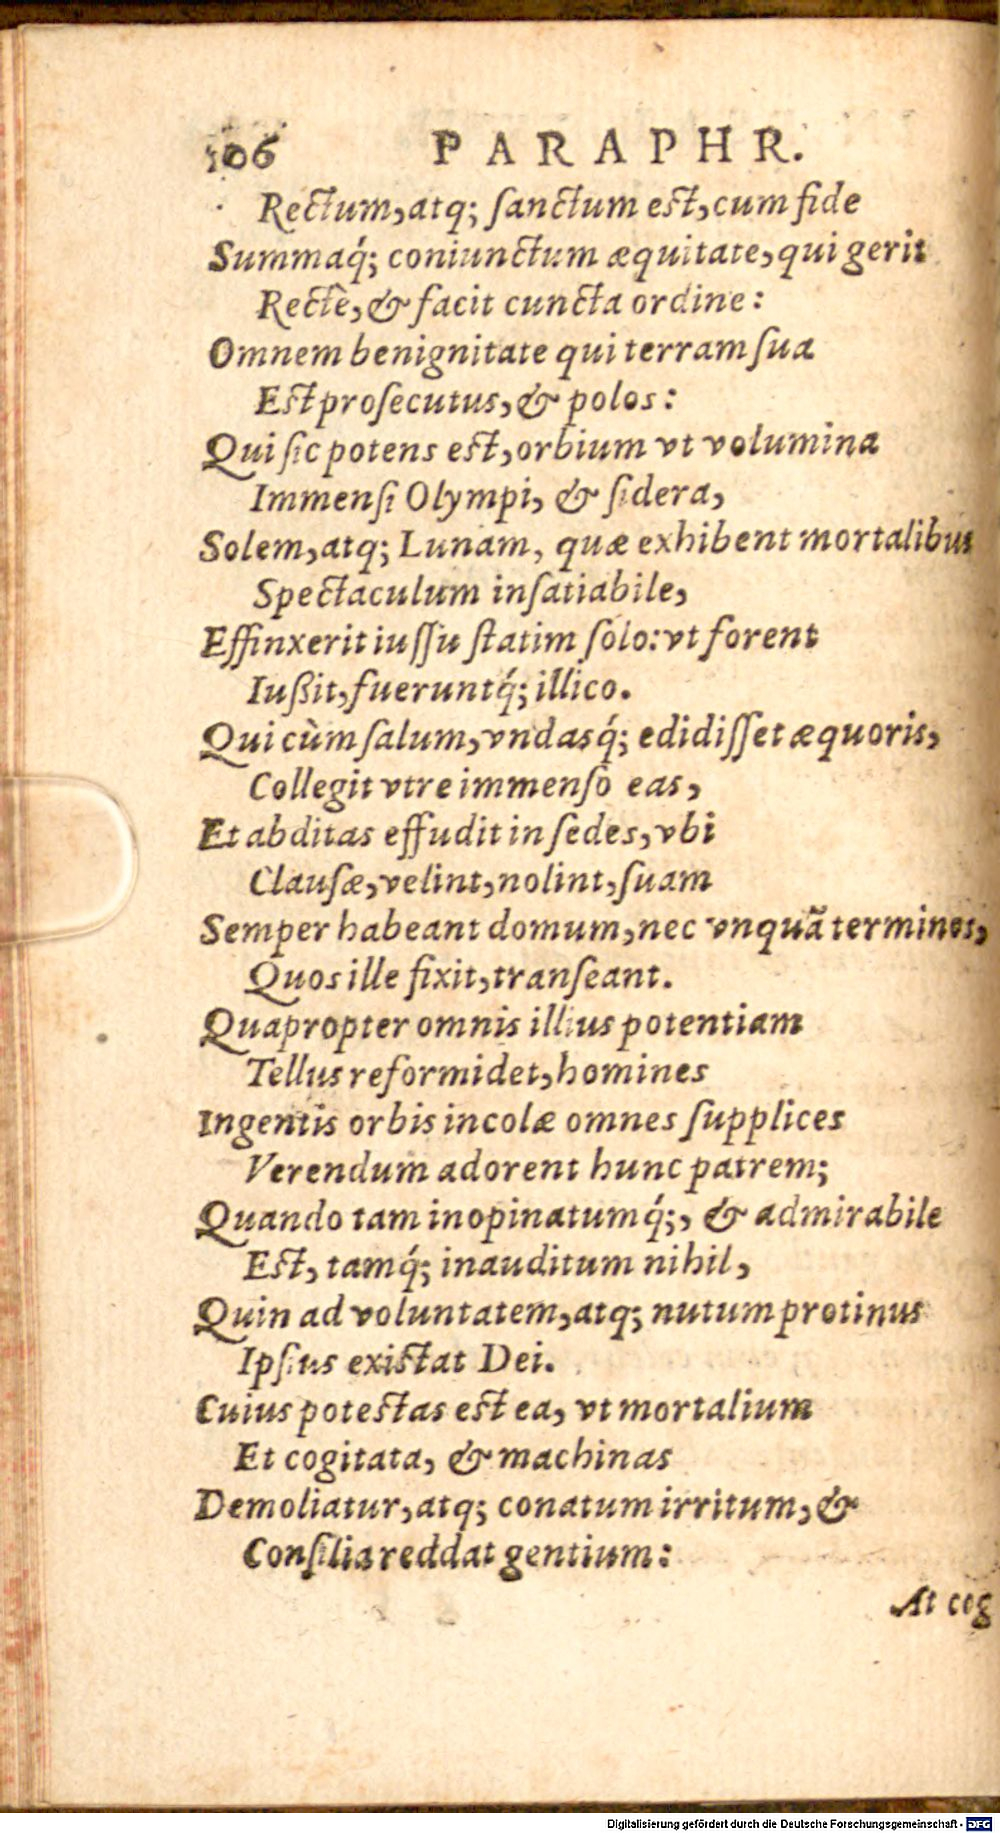 106 PARAPHR.
Rectum, atq; ſanctum est, cum fide
Summaq́; coniunctum æquitate, qui gerit
Rectè, & facit cuncta ordine:
Omnem benignitate qui terram ſua
Est proſecutus, & polos:
Qui ſic potens est, orbium vt volumina
Immenſi Olympi, & ſidera,
Solem, atq; Lunam, quæ exhibent mortalibus
Spectaculum inſatiabile,
Effinxerit iuſſu ſtatim ſolo: vt forent
Iußit, fueruntq́; illico.
Qui cùm ſalum, vndasq́; edidiſſet æquoris,
Collegit vtre immenſo eas,
Et abditas effudit in ſedes, vbi
Clauſæ, velint, nolint, ſuam
Semper habeant domum, nec vnquã terminos,
Quos ille fixit, tranſeant.
Quapropter omnis illius potentiam
Tellus reformidet, homines
Ingentis orbis incolæ omnes ſupplices
Verendum adorent hunc patrem;
Quando tam inopinatumq́;, & admirabile
Est, tamq́; inauditum nihil,
Quin ad voluntatem, atq; nutum protinus
Ipſius existat Dei.
Cuius potestas est ea, vt mortalium
Et cogitata, & machinas
Demoliatur, atq; conatum irritum, &
Conſilia reddat gentium:
At cog
Digitalisierung gefördert durch die Deutsche Forschungsgemeinschaft - DFG